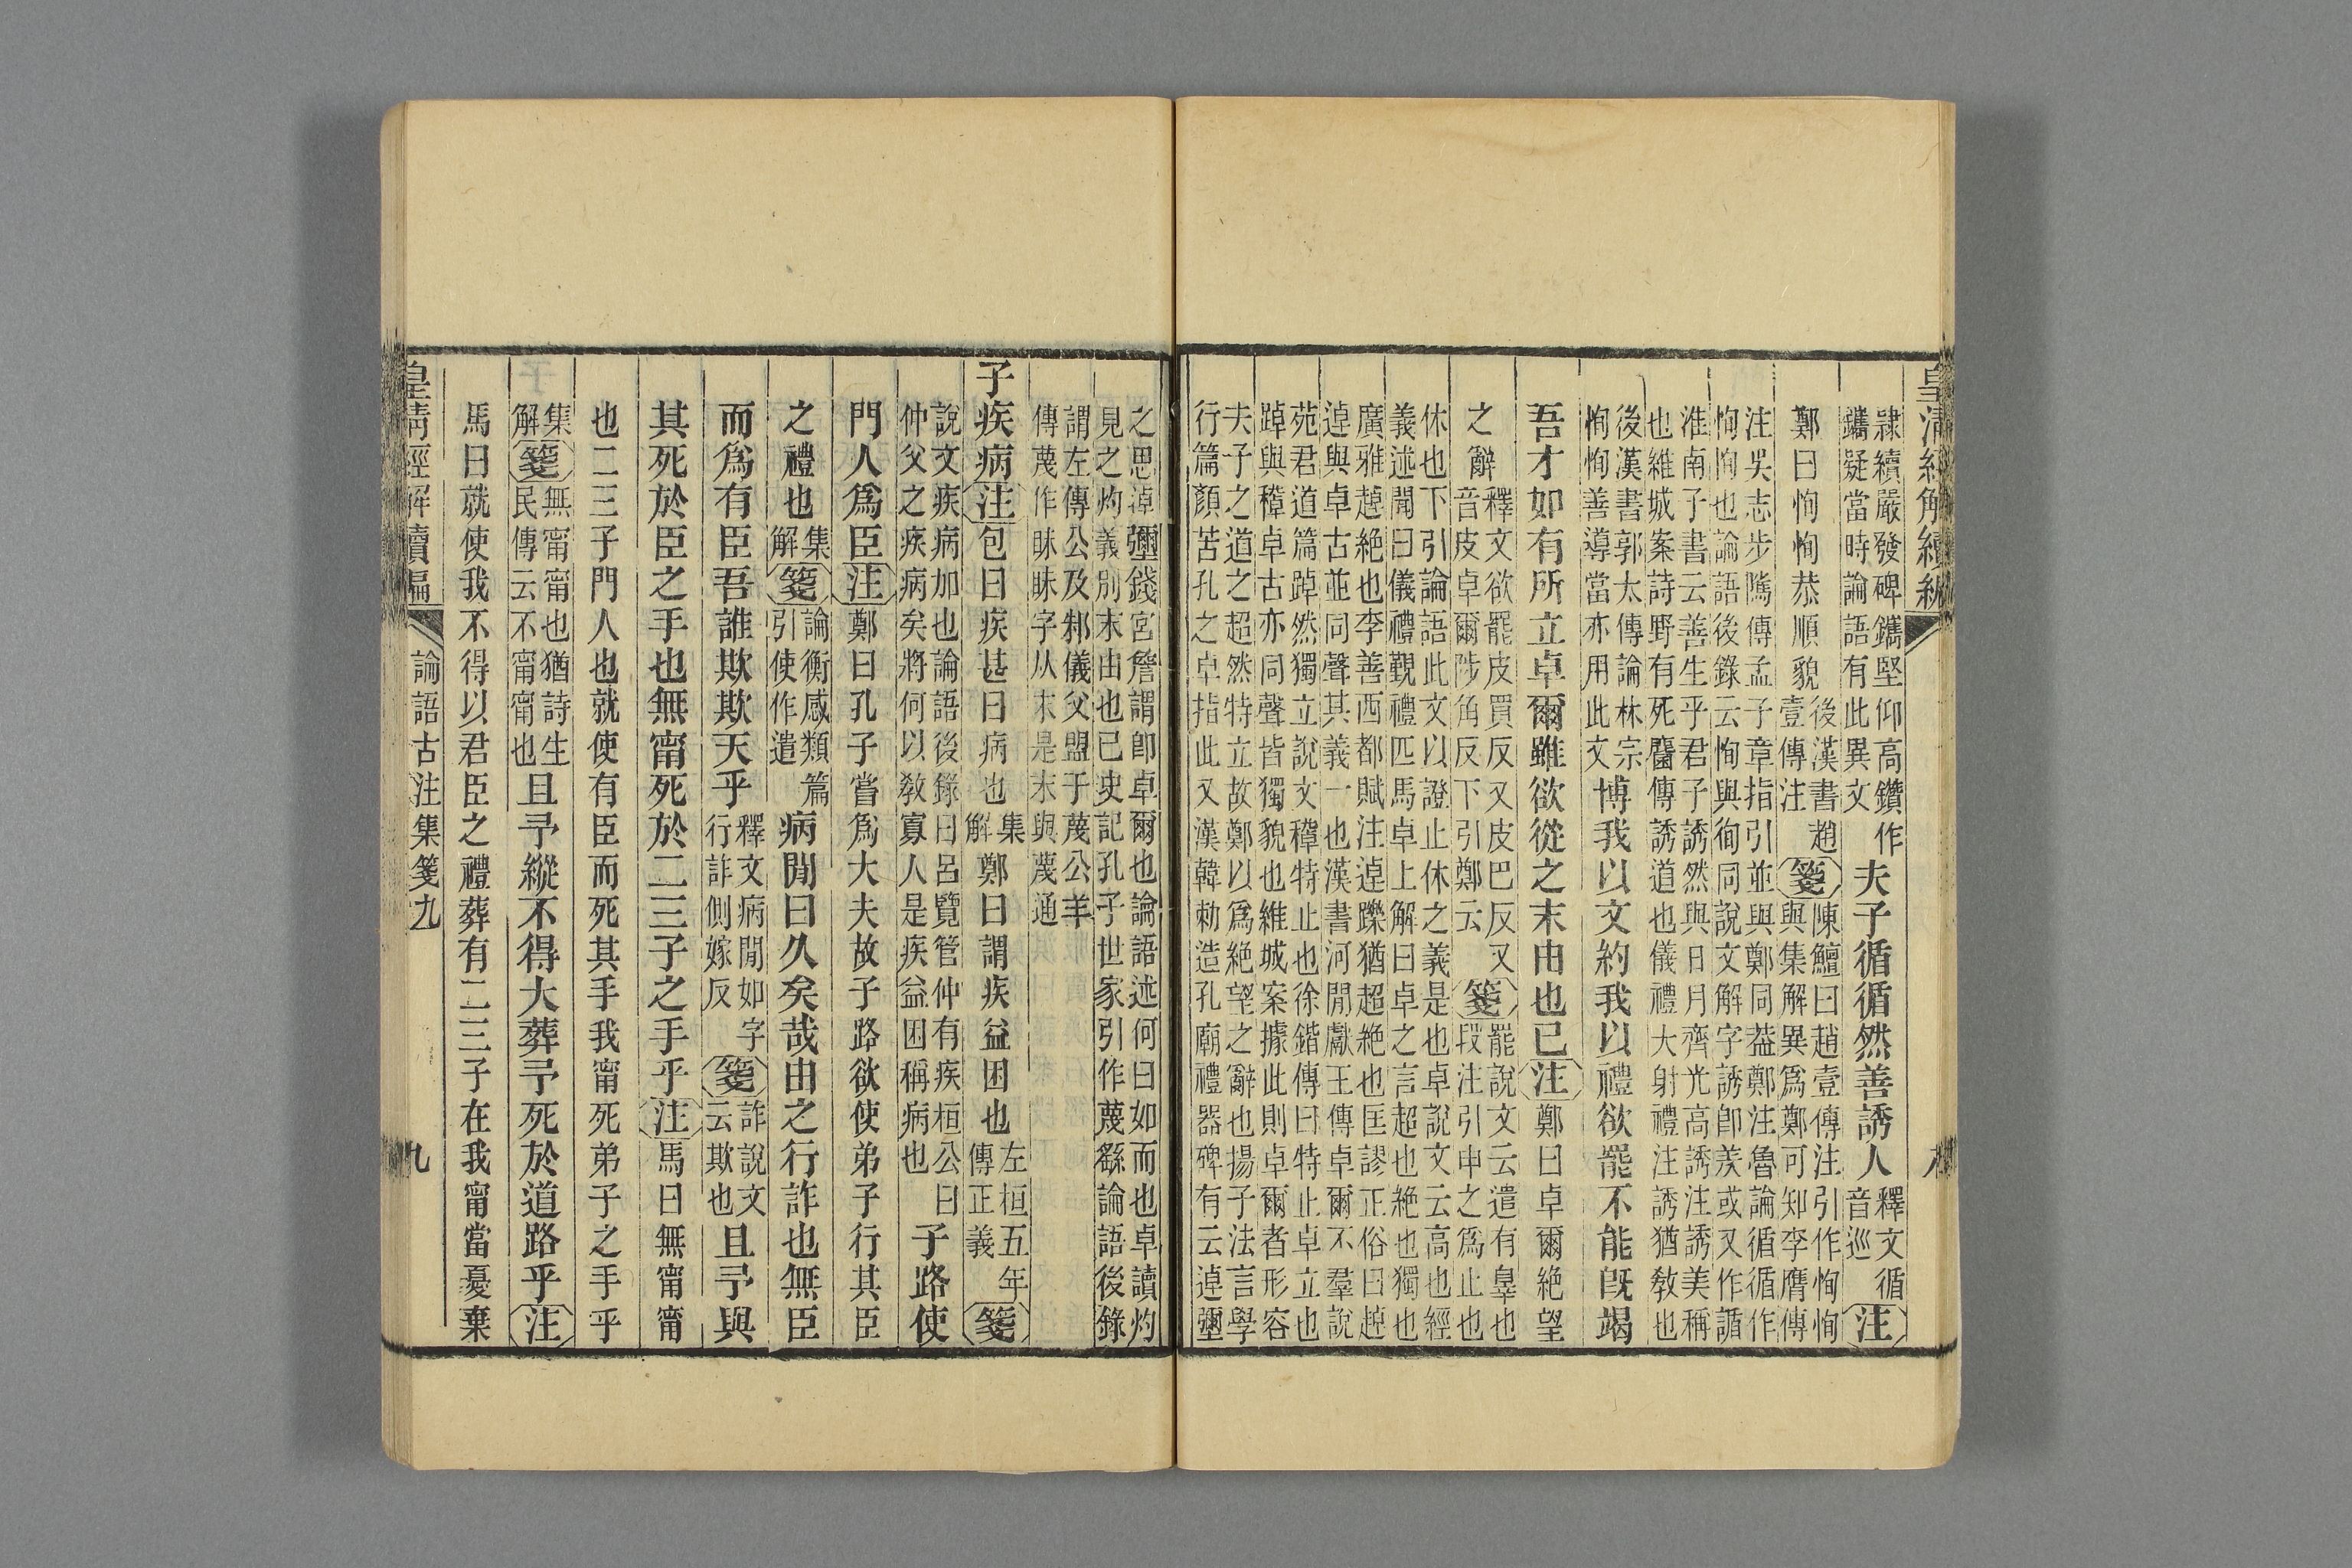 皇清經解續編
隸續嚴發碑鑴堅仰高鑽作
鑴疑當時論語有此異文
夫子循循然善誘人
釋文循
音巡
注
鄭曰恂恂恭順貌
後漢書趙
壹傳注
箋
陳鱣曰趙壹傳注引作恂恂
與集解異爲鄭可知李膺傳
注吳志步隲傳孟子章指引並與鄭同葢鄭注魯論循循作
恂恂也論語後錄云恂與徇同說文解字誘卽羑或又作䛻
淮南子書云善生乎君子誘然與日月齊光高誘注誘美稱
也維城案詩野有死麕傳誘道也儀禮大射禮注誘猶敎也
後漢書郭太傳論林宗
恂恂善導當亦用此文
博我以文約我以禮欲罷不能旣竭
吾才如有所立卓爾雖欲從之末由也已注鄭曰卓爾絶望
之辭
釋文欲罷皮買反又皮巴反又
音皮卓爾陟角反下引鄭云
箋
罷說文云遣有辠也
段注引申之爲止也
休也下引論語此文以證止休之義是也卓說文云高也經
義述聞曰儀禮覲禮匹馬卓上解曰卓之言超也絶也獨也
廣雅趠絶也李善西都賦注逴躒猶超絶也匡謬正俗曰趠
逴與卓古並同聲其義一也漢書河閒獻王傳卓爾不羣說
苑君道篇踔然獨立說文稦特止也徐鍇傳曰特止卓立也
踔與稦卓古亦同聲皆獨貌也維城案據此則卓爾者形容
夫子之道之超然特立故鄭以爲絶望之辭也揚子法言學
行篇顏苦孔之卓指此又漢韓勑造孔廟禮器碑有云逴彌
之思逴彌錢宮詹謂卽卓爾也論語述何曰如而也卓讀灼
見之灼義別末由也已史記孔子世家引作蔑繇論語後錄
謂左傳公及邾儀父盟于蔑公羊
傳蔑作昧昧字从末是末與蔑通
子疾病注包曰疾甚曰病也
集
解
鄭曰謂疾益困也
左桓五年
傳正義
箋
說文疾病加也論語後錄曰呂覽管仲有疾桓公曰
仲父之疾病矣將何以敎寡人是疾益困稱病也
子路使
門人爲臣注鄭曰孔子嘗爲大夫故子路欲使弟子行其臣
之禮也
集
解
箋
論衡感類篇
引使作遣
病閒曰久矣哉由之行詐也無臣
而爲有臣吾誰欺欺天乎
釋文病閒如字
行詐側嫁反
箋
詐說文
云欺也
且予與
其死於臣之手也無甯死於二三子之手乎注馬曰無甯甯
也二三子門人也就使有臣而死其手我甯死弟子之手乎
集
解
箋
無甯甯也猶詩生
民傳云不甯甯也
且予縱不得大葬予死於道路乎注
馬曰就使我不得以君臣之禮葬有二三子在我甯當憂棄
皇清經解續編
論語古注集箋九
九